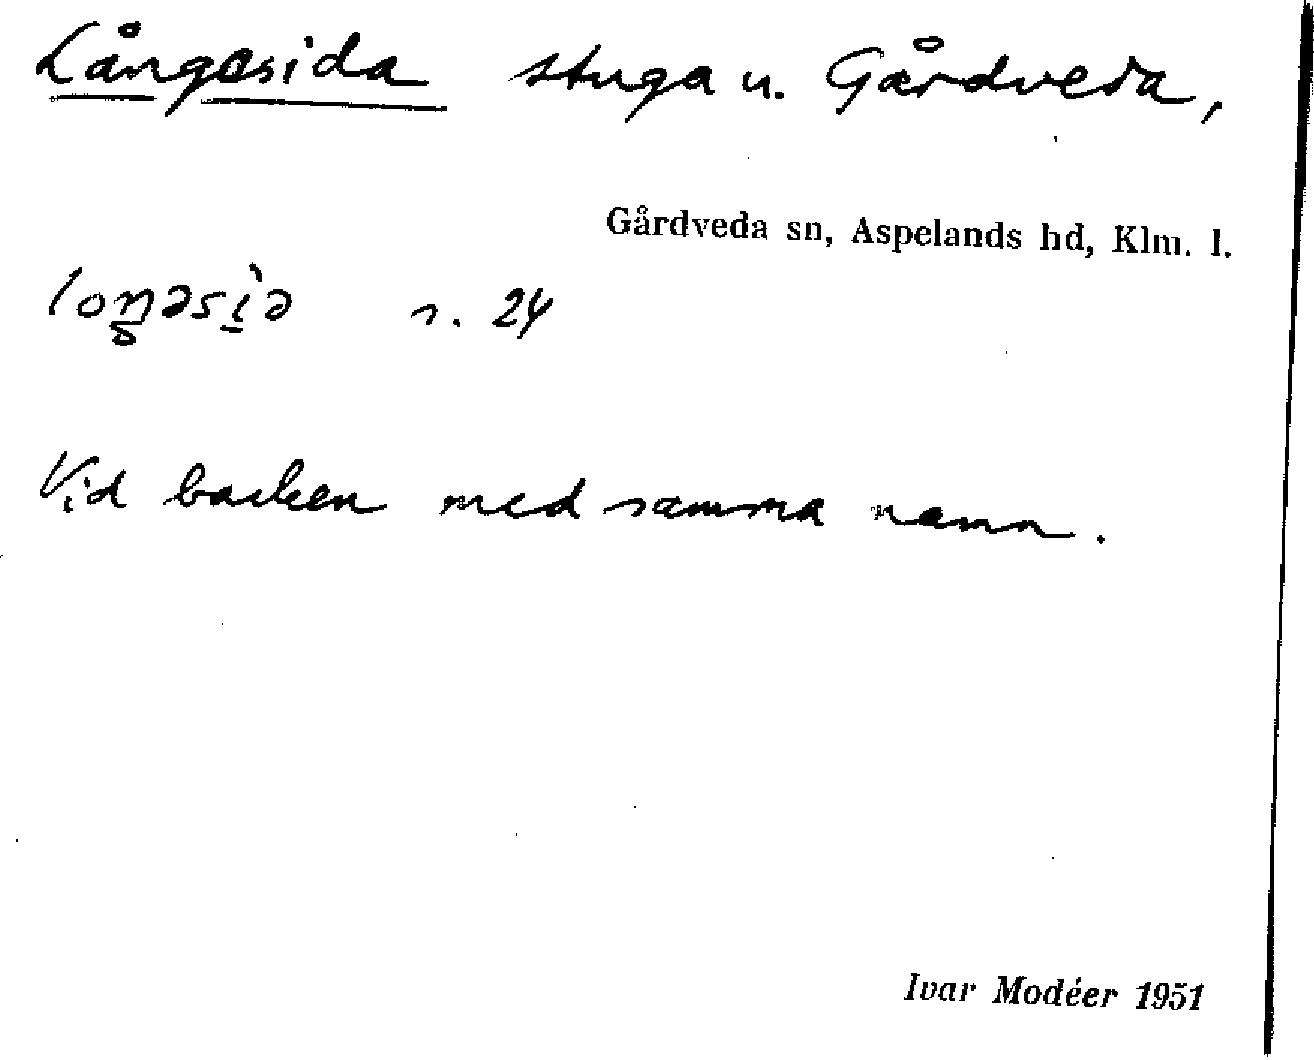 Långesida stuga u. Gårdveda,
Gårdveda sn, Aspelands hd, Klm. l.
loŋəsìə s. 24
Vid backen med samma namn.
Ivar Modéer 1951